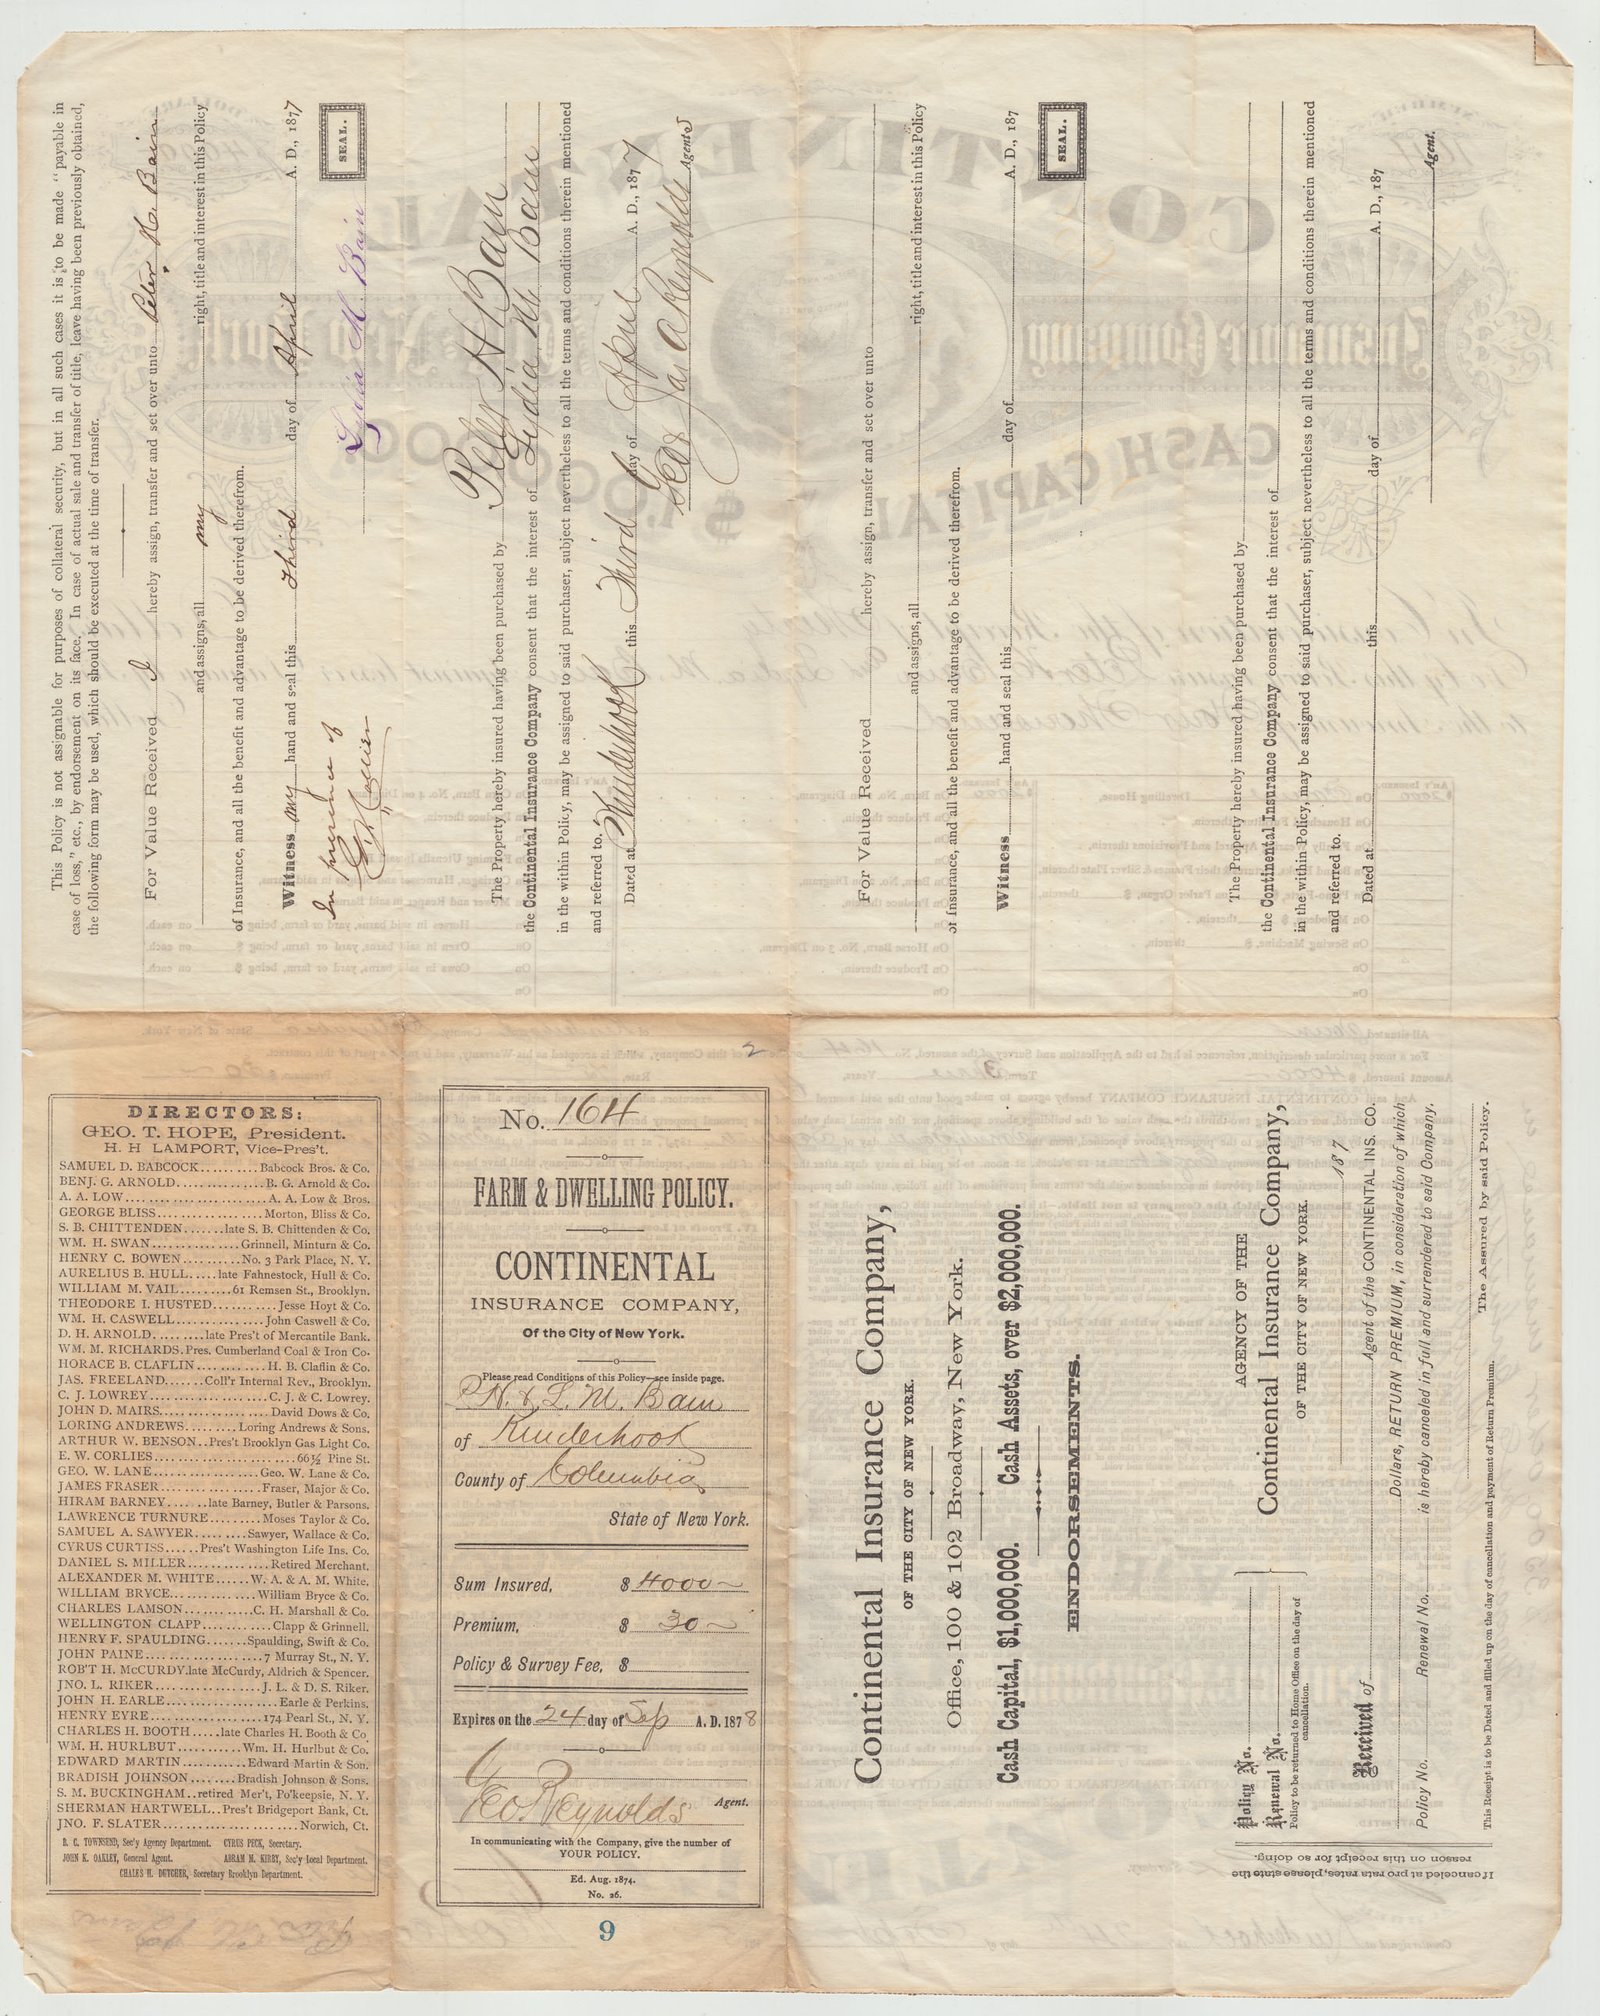 This Policy is not assignable for purposes of collateral security, but in all such cases it is to be made "payable in
case of loss," etc., by endorsement on its face. In case of actual sale and transfer of title, leave having been previously obtained,
the following form may be used, which should be executed at the time of transfer.
For Value Received I hereby assign, transfer and set over unto Peter H. Bain
and assigns, all my right, title and interest in this Policy
of Insurance, and all the benefit and advantage to be derived therefrom.
Witness my hand and seal this third day of April A. D., 1877
In presence of
Lydia M. Bain
SEAL.
The Property hereby insured having been purchased by Peter H Bain
the Continental Insurance Company consent that the interest of Lydia M. Bain
in the within Policy, may be assigned to said purchaser, subject nevertheless to all the terms and conditions therein mentioned
and referred to.
Dated at Kinderhook this Third day of April A. D., 1877
Geo Jas A Reynolds Agents
For Value Received hereby assign, transfer and set over unto
and assigns, all right, title and interest in this Policy
of Insurance, and all the benefit and advantage to be derived therefrom.
Witness hand and seal this day of A. D., 187
SEAL.
The Property hereby insured having been purchased by
the Continental Insurance Company consent that the interest of
in the within Policy, may be assigned to said purchaser, subject nevertheless to all the terms and conditions therein mentioned
and referred to.
Dated at this day of A. D., 187
Agent.
DIRECTORS:
GEO. T. HOPE, President.
H. H LAMPORT, Vice-Pres't.
SAMUEL D. BABCOCK..........Babcock Bros. & Co.
BENJ. G. ARNOLD..............B. G. Arnold & Co.
A. A. LOW.......................A. A. Low & Bros.
GEORGE BLISS..................Morton, Bliss & Co.
S. B. CHITTENDEN.......late S. B. Chittenden & Co.
WM. H. SWAN...............Grinnell, Minturn & Co.
HENRY C. BOWEN..........No. 3 Park Place, N. Y.
AURELIUS B. HULL.....late Fahnestock, Hull & Co.
WILLIAM M. VAIL.........61 Remsen St., Brooklyn.
THEODORE I. HUSTED...........Jesse Hoyt & Co.
WM. H. CASWELL.............John Caswell & Co.
D. H. ARNOLD.........late Pres't of Mercantile Bank.
WM. M. RICHARDS.Pres. Cumberland Coal & Iron Co.
HORACE B. CLAFLIN...........H. B. Claflin & Co.
JAS. FREELAND......Coll'r Internal Rev., Brooklyn.
C. J. LOWREY....................C. J. & C. Lowrey.
JOHN D. MAIRS..................David Dows & Co.
LORING ANDREWS........Loring Andrews & Sons.
ARTHUR W. BENSON..Pres't Brooklyn Gas Light Co.
E. W. CORLIES.........................66½ Pine St.
GEO. W. LANE................Geo. W. Lane & Co.
JAMES FRASER...............Fraser, Major & Co.
HIRAM BARNEY.......late Barney, Butler & Parsons.
LAWRENCE TURNURE..........Moses Taylor & Co.
SAMUEL A. SAWYER.........Sawyer, Wallace & Co.
CYRUS CURTISS......Pres't Washington Life Ins. Co.
DANIEL S. MILLER..............Retired Merchant.
ALEXANDER M. WHITE......W. A. & A. M. White.
WILLIAM BRYCE...............William Bryce & Co.
CHARLES LAMSON...........C. H. Marshall & Co.
WELLINGTON CLAPP.............Clapp & Grinnell.
HENRY F. SPAULDING.......Spaulding, Swift & Co.
JOHN PAINE....................7 Murray St., N. Y.
ROB'T H. McCURDY.late McCurdy, Aldrich & Spencer.
JNO. L. RIKER....................J. L. & D. S. Riker.
JOHN H. EARLE...................Earle & Perkins.
HENRY EYRE....................174 Pearl St., N. Y.
CHARLES H. BOOTH.....late Charles H. Booth & Co
WM. H. HURLBUT............Wm. H. Hurlbut & Co.
EDWARD MARTIN.............Edward Martin & Son.
BRADISH JOHNSON........Bradish Johnson & Sons.
S. M. BUCKINGHAM..retired Mer't, Po'keepsie, N. Y.
SHERMAN HARTWELL..Pres't Bridgeport Bank, Ct.
JNO. F. SLATER.........................Norwich, Ct.
B. C. TOWNSEND, Sec'y Agency Department. CYRUS PECK, Secretary.
JOHN K. OAKLEY, General Agent. ABRAM M. KIRBY, Sec'y Local Department.
CHALES H. DUTCHER, Secretary Brooklyn Department.
2
No. 164
FARM & DWELLING POLICY.
CONTINENTAL
INSURANCE COMPANY,
Of the City of New York.
Please read Conditions of this Policy—see inside page.
P. H. & L. M. Bain
of Kinderhook
County of Columbia
State of New York.
Sum Insured, $ 4000
Premium, $ 30
Policy & Survey Fee, $
Expires on the 24 day of Sep A. D. 1878
Geo. Reynolds Agent.
In communicating with the Company, give the number of
YOUR POLICY.
Ed. Aug. 1874.
No. 26.
9
Continental Insurance Company,
OF THE CITY OF NEW YORK.
Office, 100 & 102 Broadway, New York.
Cash Capital, $1,000,000. Cash Assets, over $2,000,000.
ENDORSEMENTS.
Policy No.
Renewal No.
Policy to be returned to Home Office on the day of
cancellation.
AGENCY OF THE
Continental Insurance Company,
OF THE CITY OF NEW YORK.
187
Received of Agent of the CONTINENTAL INS. CO.
Dollars, RETURN PREMIUM, in consideration of which
Policy No. Renewal No. is hereby canceled in full and surrendered to said Company.
The Assured by said Policy.
This Receipt is to be Dated and filled up on the day of cancellation and payment of Return Premium.
If canceled at pro rata rates, please state the
reason on this receipt for so doing.